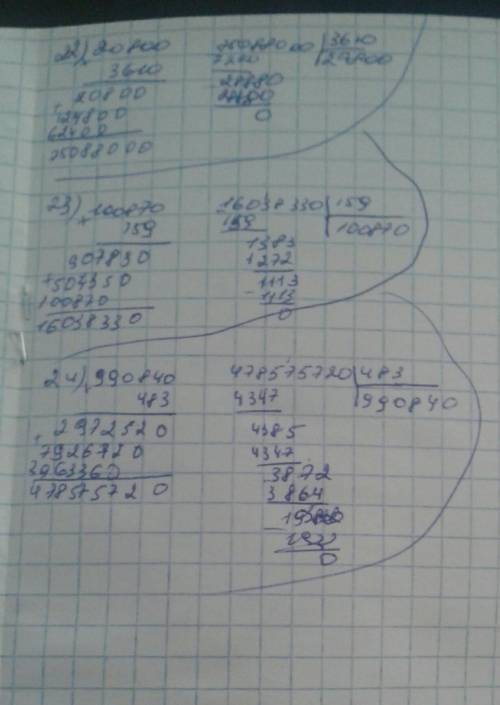 22) 20800
3610
20800
124800
62400
75088000
75088000 3610
7220 20800
0
23) 100870
159
907830
504350
100870
16038330
16038330 159
159 100870
1383
1272
1113
1113
0
24) 990840
483
2972520
7926720
3963360
478575720
478575720 483
4347 990840
4385
4347
3872
3864
1932
0